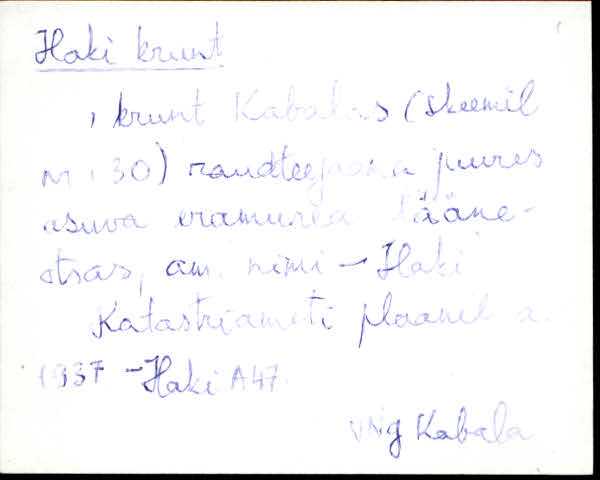 Haki krunt
, krunt Kabalas (skeemil
nr. 30) raudteejaama juures
asuva eramurea lääne-
otsas, am. nimi - Haki
Katastriameti plaanil a.
1937 - Haki A47.
VNg Kabala